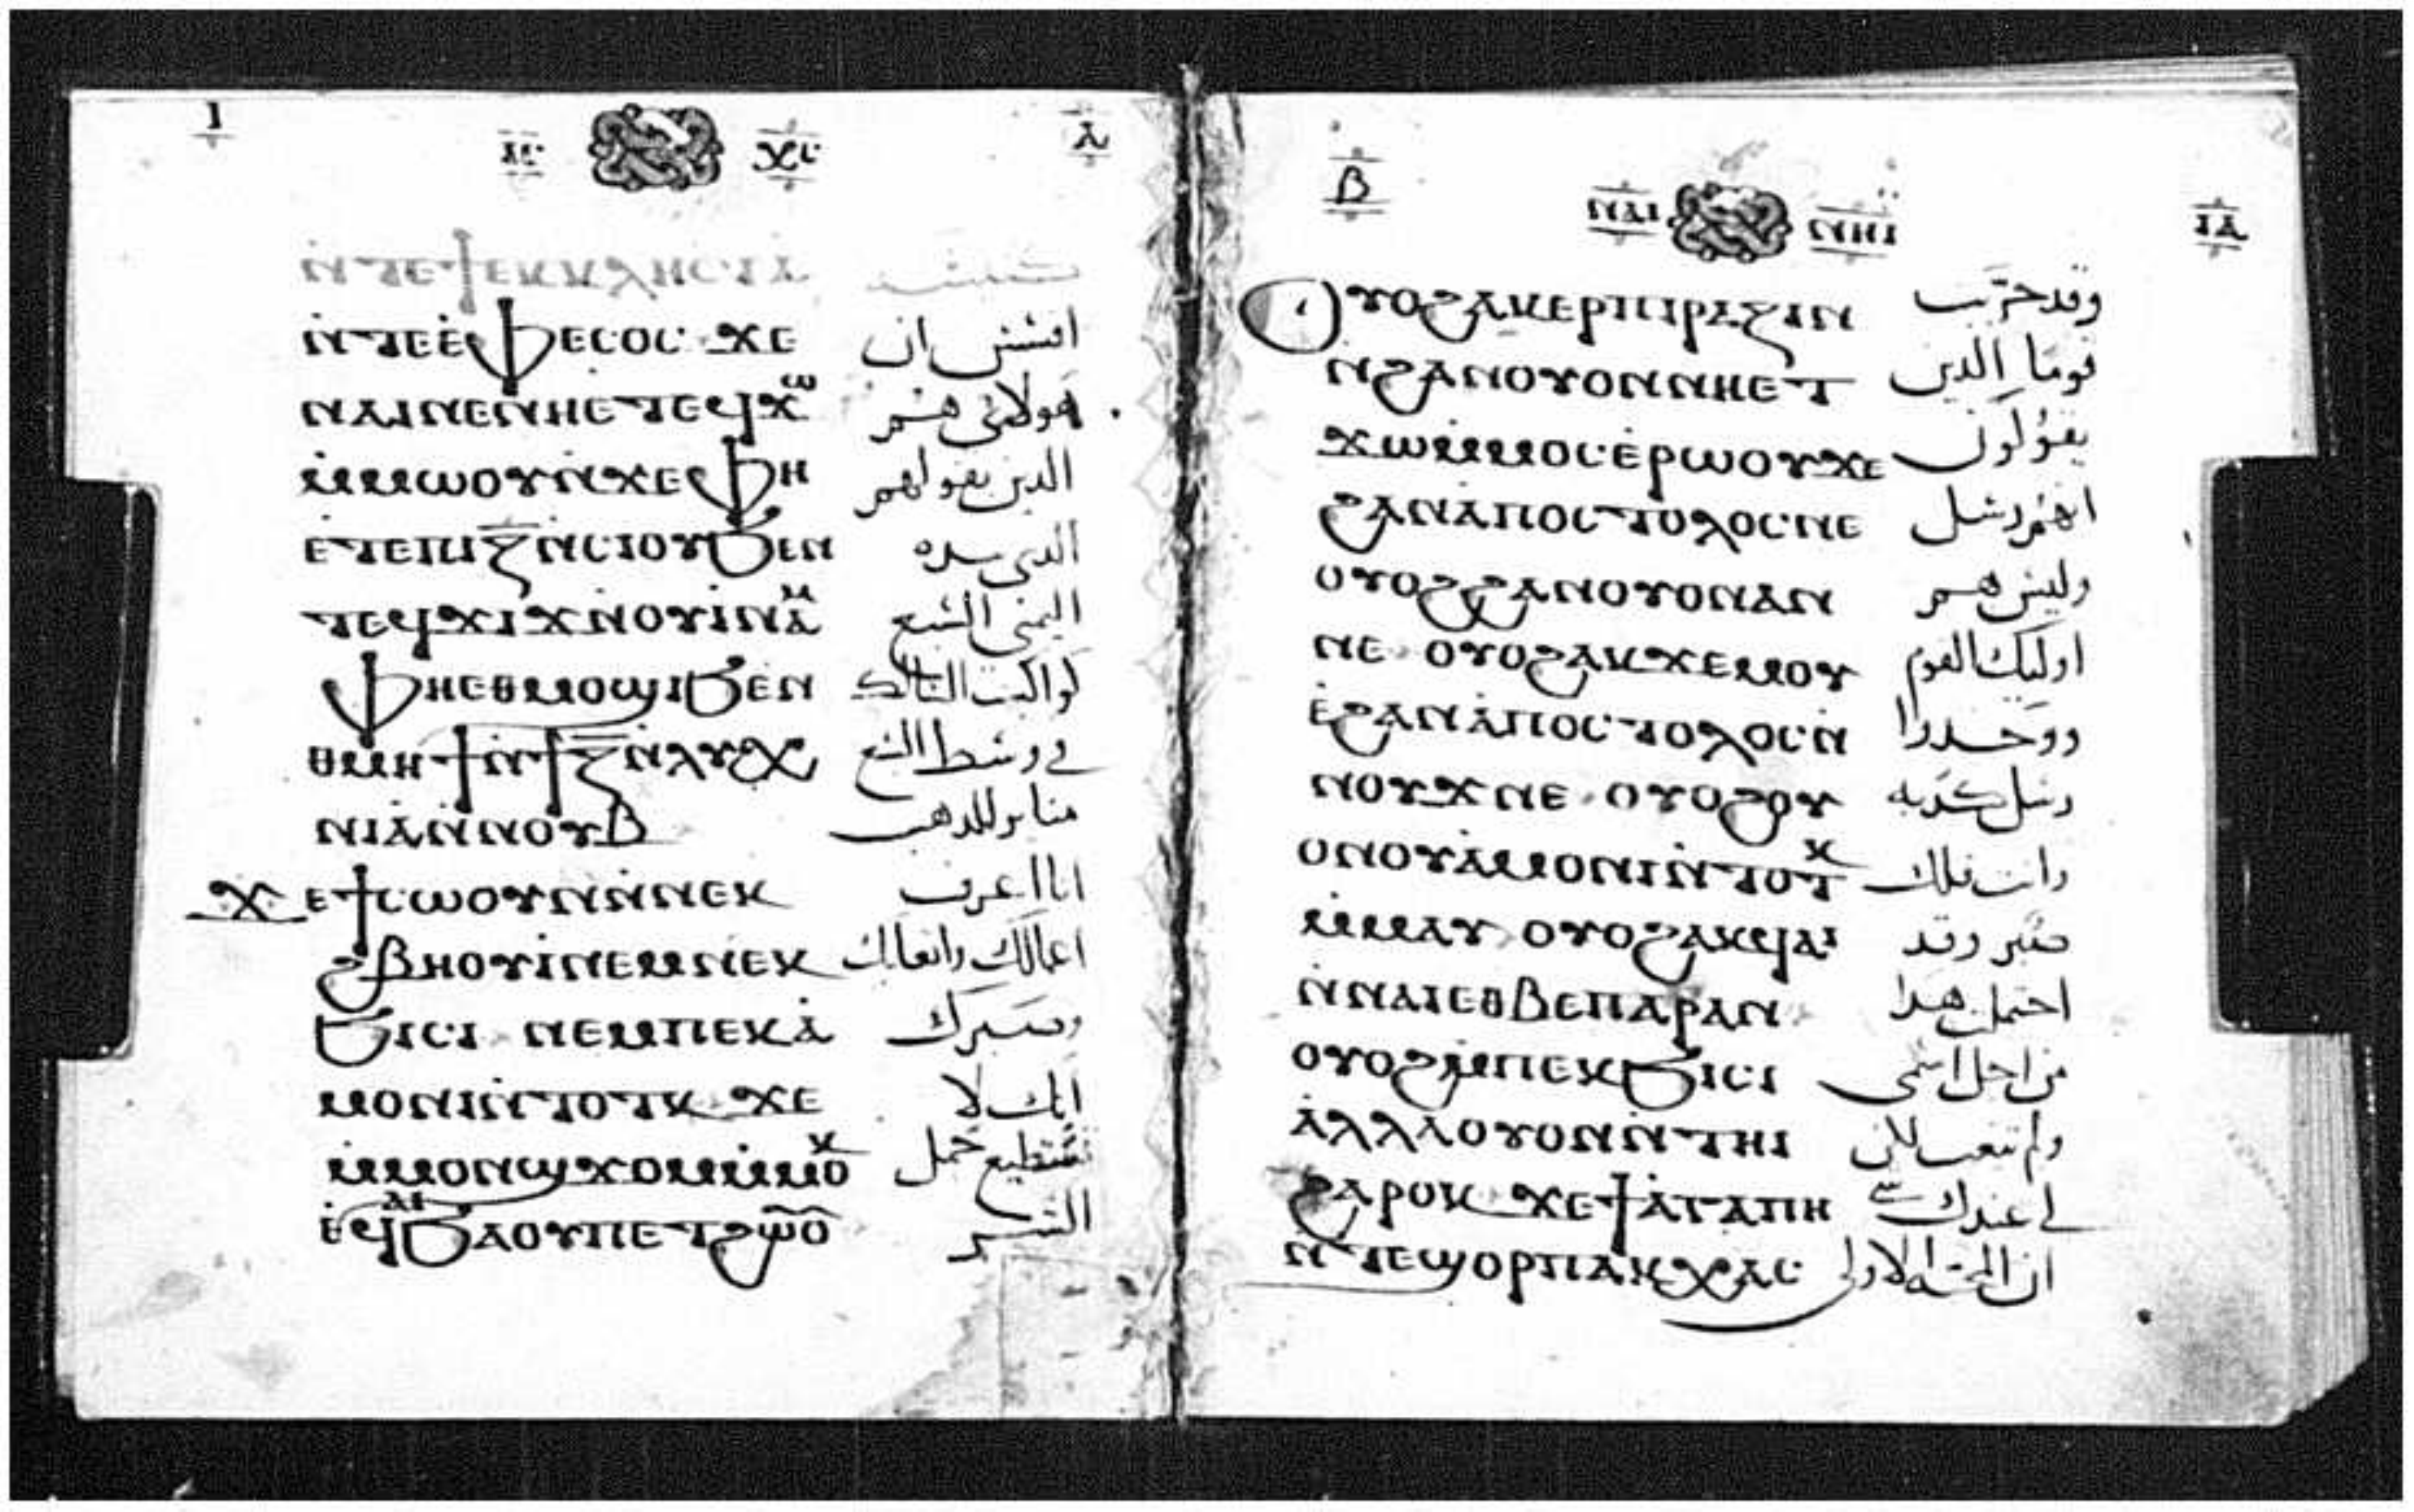 ⲓ ⲓⲥ ⲭⲥ ⲁ
ⲛⲧⲉϯⲉⲕⲕⲗⲏⲥⲓⲁ
ⲛ̇ⲧⲉⲉ̇ⲫⲉⲥⲟⲥ ϫⲉ افسس ان
ⲛⲁⲓⲛⲉⲛⲏⲉⲧⲉϥϫⲱ هولاى هم
ⲙ̇ⲙⲱⲟⲩⲛ̇ϫⲉⲫⲏ الدين يقولهم
ⲉ̇ⲧⲉⲡⲓⲍ̅ⲛ̇ⲥⲓⲟⲩϧⲉⲛ الدى بيده
ⲧⲉϥϫⲓϫⲛⲟⲩⲓⲛⲁⲙ اليمنى السبع
ⲫⲏⲉⲑⲙⲟϣⲓϧⲉⲛ كواكب السالك
ⲑⲙⲏϯⲛ̇ϯⲍ̅ⲛⲗⲩⲭ في وسط السبع
ⲛⲓⲁ̇ⲛ̇ⲛⲟⲩⲃ مناير للدهب
ϫⲉϯⲥⲱⲟⲩⲛⲛ̇ⲛⲉⲕ انا اعرف
ϩⲃⲏⲟⲩⲓ̇ⲛⲉⲙⲛⲉⲕ اعمالك واتعابك
ϧⲓⲥⲓ ⲛⲉⲙⲡⲉⲕⲁ̇ وصبرك
ⲙⲟⲛⲓⲛ̇ⲧⲟⲧⲕ ϫⲉ انك لا
ⲙ̇ⲙⲟⲛϣϫⲟⲙⲙ̇ⲙⲟⲕ تستطيع حمل
ⲉ̇ϥⲁⲓϧⲁⲟⲩⲡⲉⲧϩⲱⲟ الشر
ⲃ ⲛⲁⲓ ⲛⲏⲓ ⲓⲁ
ⲟⲩⲟϩⲁⲕⲉⲣⲡⲓⲣⲁⲍⲓⲛ وقد جربت
ⲛ̇ϩⲁⲛⲟⲩⲟⲛⲛⲏⲉⲧ قوما الدين
ϫⲱⲙ̇ⲙⲟⲥⲉ̇ⲣⲱⲟⲩϫⲉ يقولون
ϩⲁⲛⲁ̇ⲡⲟⲥⲧⲟⲗⲟⲥⲛⲉ انهم رسل
ⲟⲩⲟϩϩⲁⲛⲟⲩⲟⲛⲁⲛ وليس هم
ⲛⲉ ⲟⲩⲟϩⲁⲕϫⲉⲙⲟⲩ اوليك القوم
ⲉ̇ϩⲁⲛⲁ̇ⲡⲟⲥⲧⲟⲗⲟⲥⲛ̇ ووجدوا
ⲛⲟⲩϫⲛⲉ ⲟⲩⲟϩⲟⲩ رسل كدبه
ⲟⲛⲟⲩⲁ̇ⲙⲟⲛⲓⲛ̇ⲧⲟⲧⲕ وانت فلك
ⲙ̇ⲙⲁⲩ ⲟⲩⲟϩⲁⲕϥⲁⲓ صبر وقد
ⲛ̇ⲛⲁⲓⲉⲑⲃⲉⲡⲁⲣⲁⲛ احتملت هدا
ⲟⲩⲟϩⲙ̇ⲡⲉⲕϧⲓⲥⲓ من اجل اسمى
ⲁ̇ⲗⲗⲁⲟⲩⲟⲛⲛ̇ⲧⲏⲓ ولم تتعب لان
ϩⲁⲣⲟⲕ ϫⲉϯⲁ̇ⲅⲁⲡⲏ لي عندك
ⲛ̇ⲧⲉϣⲟⲣⲡⲁⲕⲭⲁⲥ ان المحبه الاولى